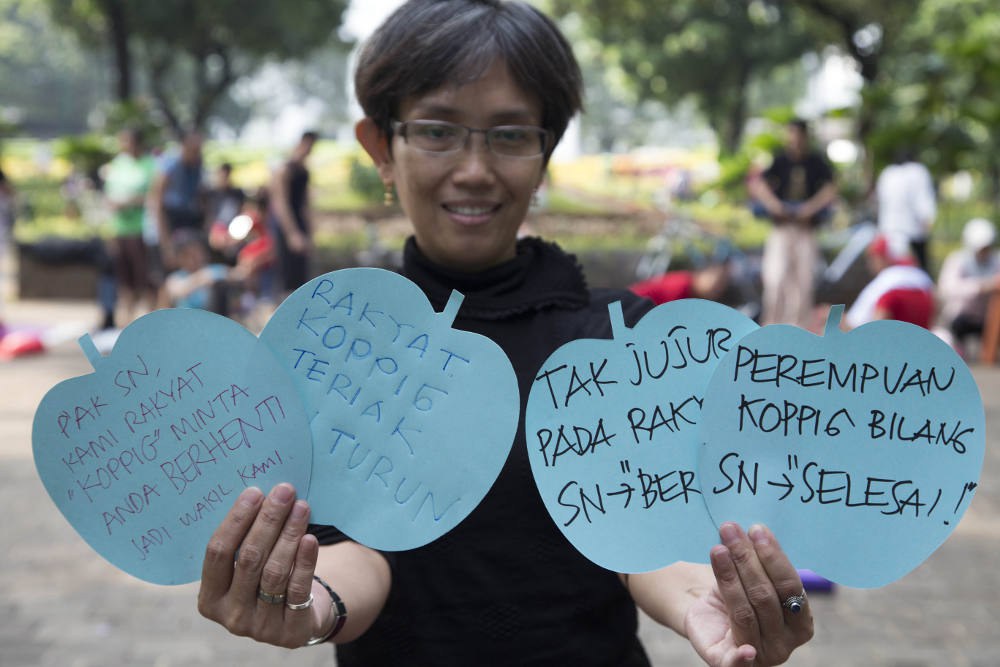 PAK SN,
KAMI RAKYAT
"KOPPIG" MINTA
ANDA BERHENTI
JADI WAKIL KAMI.
RAKYAT
KOPPIG
TERIAK
TURUN
TAK JUJUR
PADA
SN→"BER
PEREMPUAN
KOPPIG BILANG
SN→"SELESAI!"